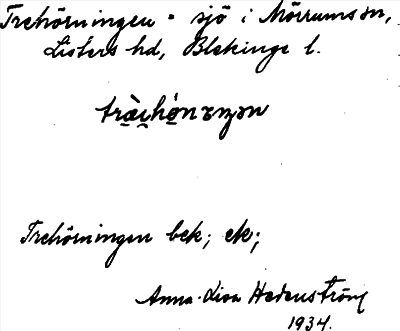 Trehörningen = sjö i Mörrums sn,
Listers hd, Blekinge l.
Trehörningen bek; ek;
Anna-Lisa Hedenström
1934.